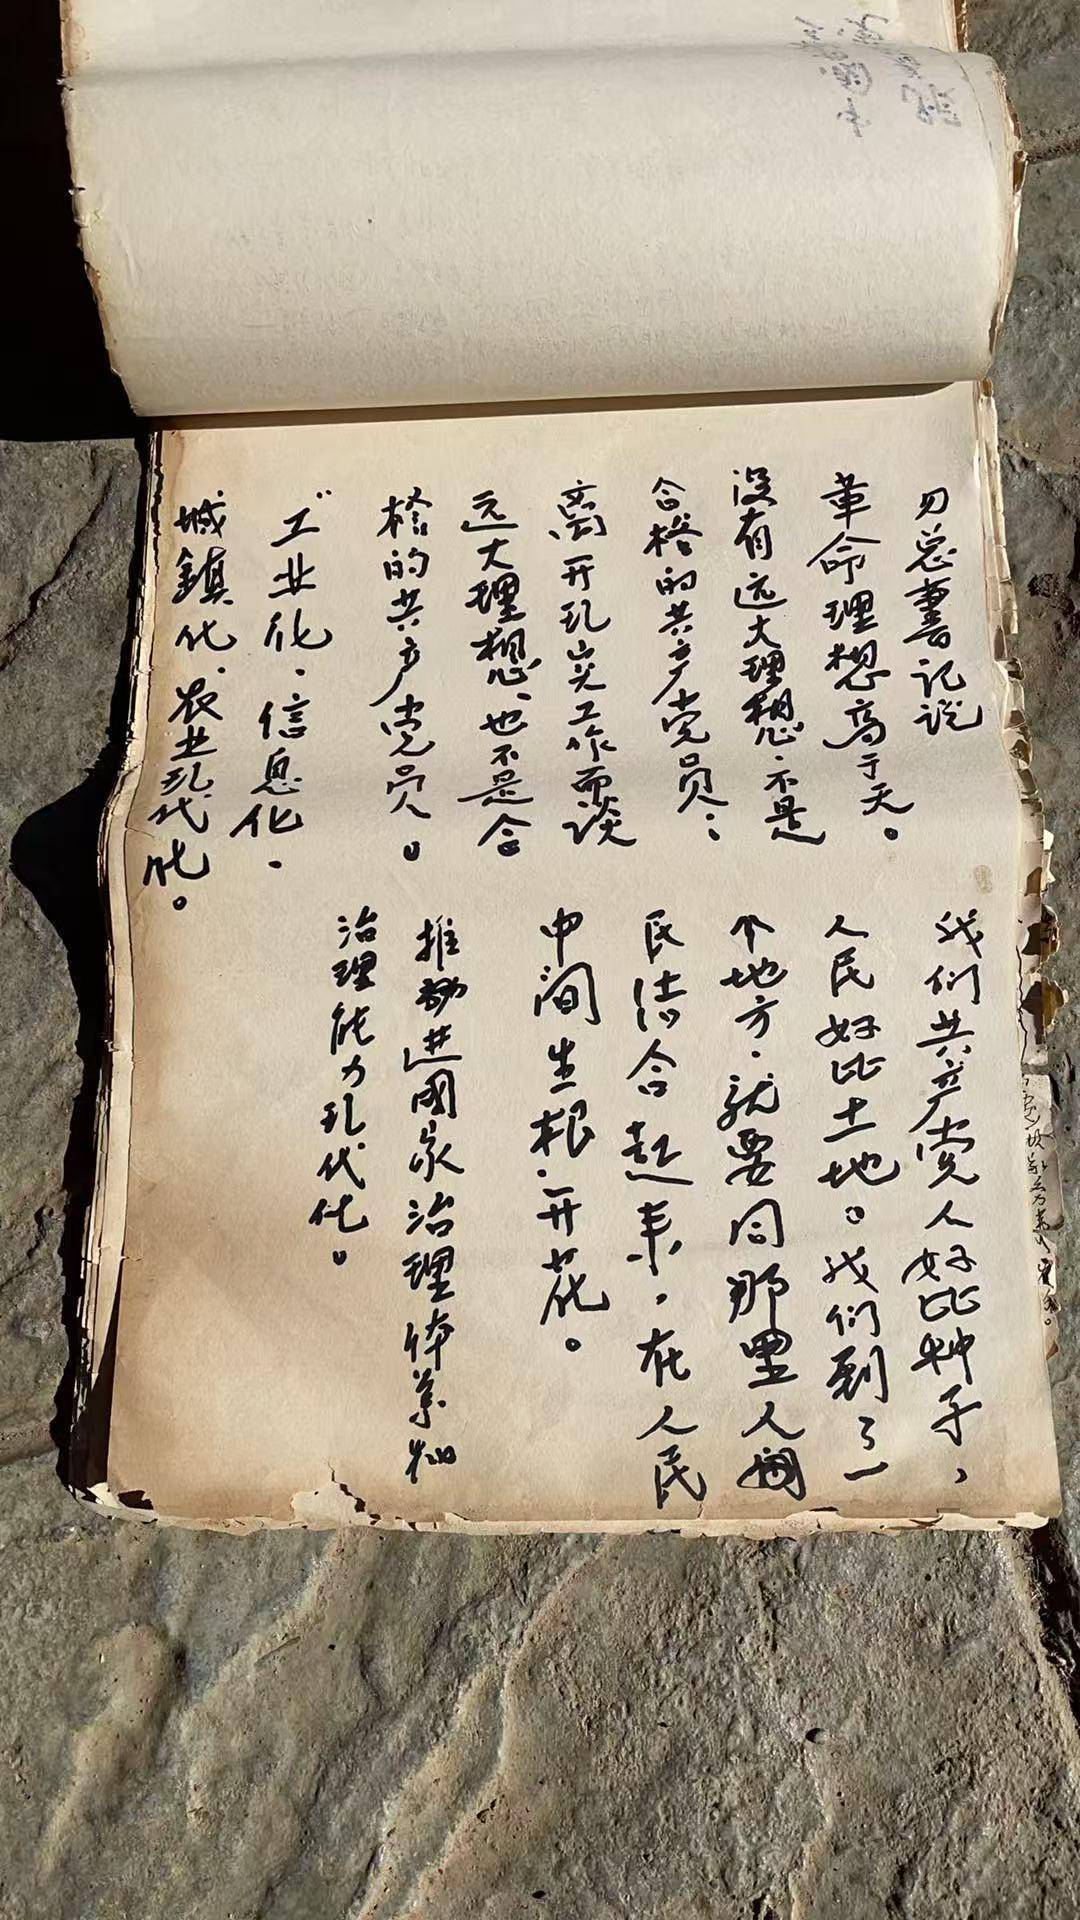 习总书记说
革命理想高于天。
没有远大理想、不是
合格的共产党员;
离开现实工作而谈
远大理想、也不是合
格的共产党员。
“工业化、信息化、
城镇化、农业现代化。
我们共产党人好比种子,
人民好比土地。我们到了一
个地方、就要同那里人
民结合起来,在人民
中间生根、开花。
推进国家治理体系和
治理能力现代化。